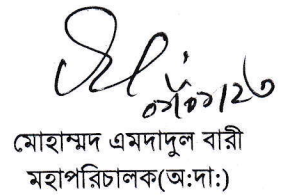 ০৭/০৯/২৩
মোহাম্মদ এমদাদুল বারী
মহাপরিচালক(অ:দা:)